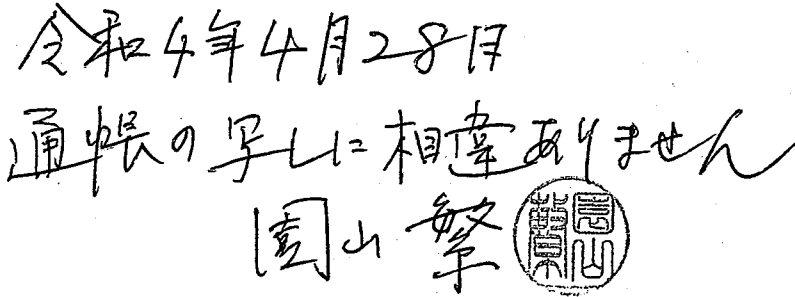 令和4年4月28日
通帳の写しに相違ありません
園山 繁